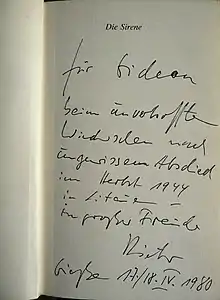 Die Sirene
für Gideon
beim unverhofften
Wiedersehen nach
ungewissem Abschied
im Herbst 1944
in Litauen –
in großer Freude
Gießen 17./18. IV. 1980